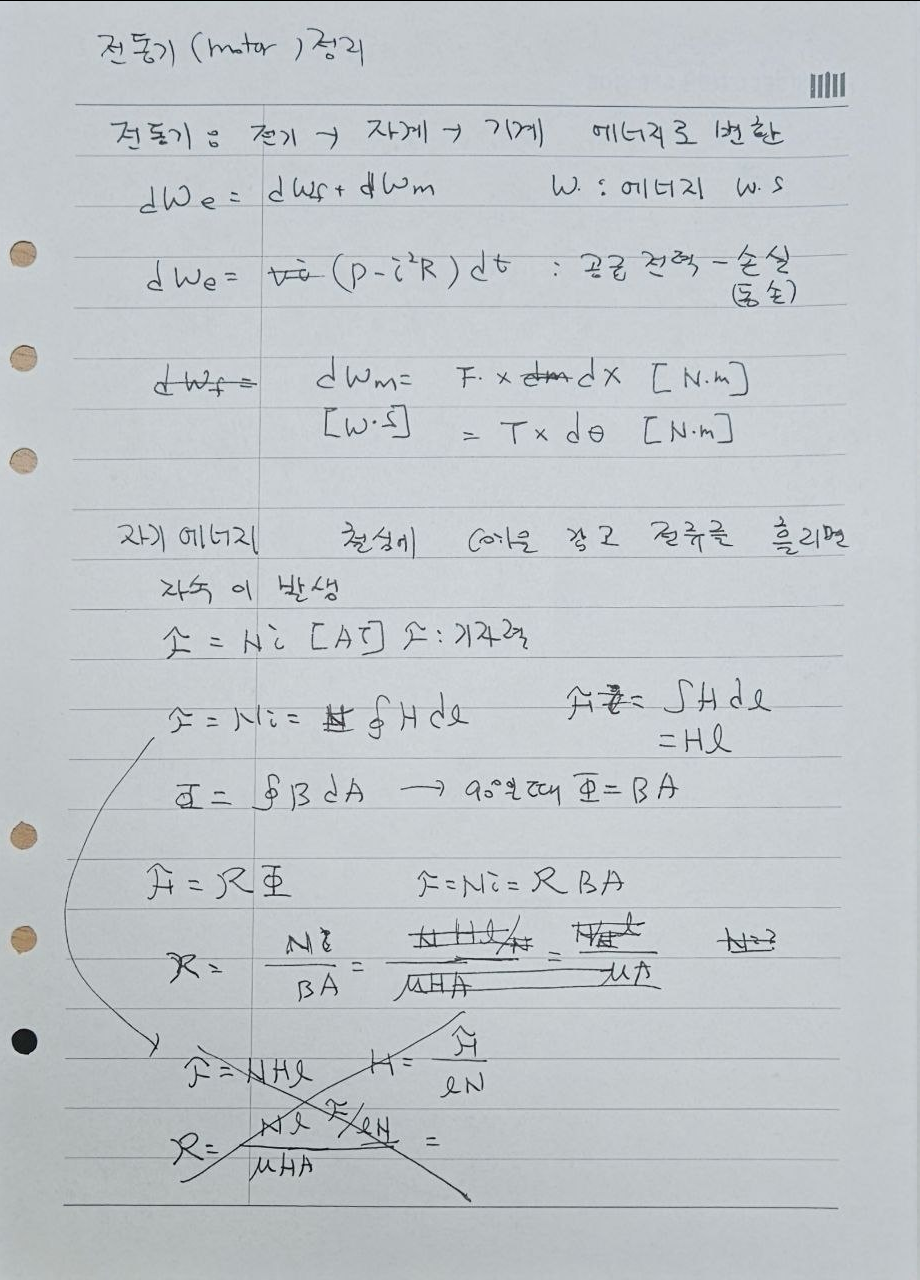 전동기 (motor) 정리
전동기 : 전기 → 자계 → 기계 에너지로 변환
dWe = dWf + dWm W : 에너지 W.S
dWe = vi (P - i²R) dt : 공급 전력 - 손실
(동손)
dWf = dWm = F. × dm dx [N.m]
[W.S] = T × dθ [N.m]
자기 에너지 철심에 코일을 감고 전류를 흘리면
자속이 발생
F = Ni [AT] F : 기자력
F = Ni = N ∮ H dl F = ∫ H dl
= Hl
Φ = ∮ B dA → 90°일때 Φ = BA
F = R Φ F = Ni = R BA
R = Ni / BA = N Hl/N / μHA = l / μA N=?
F = NHl H = F / lN
R = Nl F/lN / μHA =